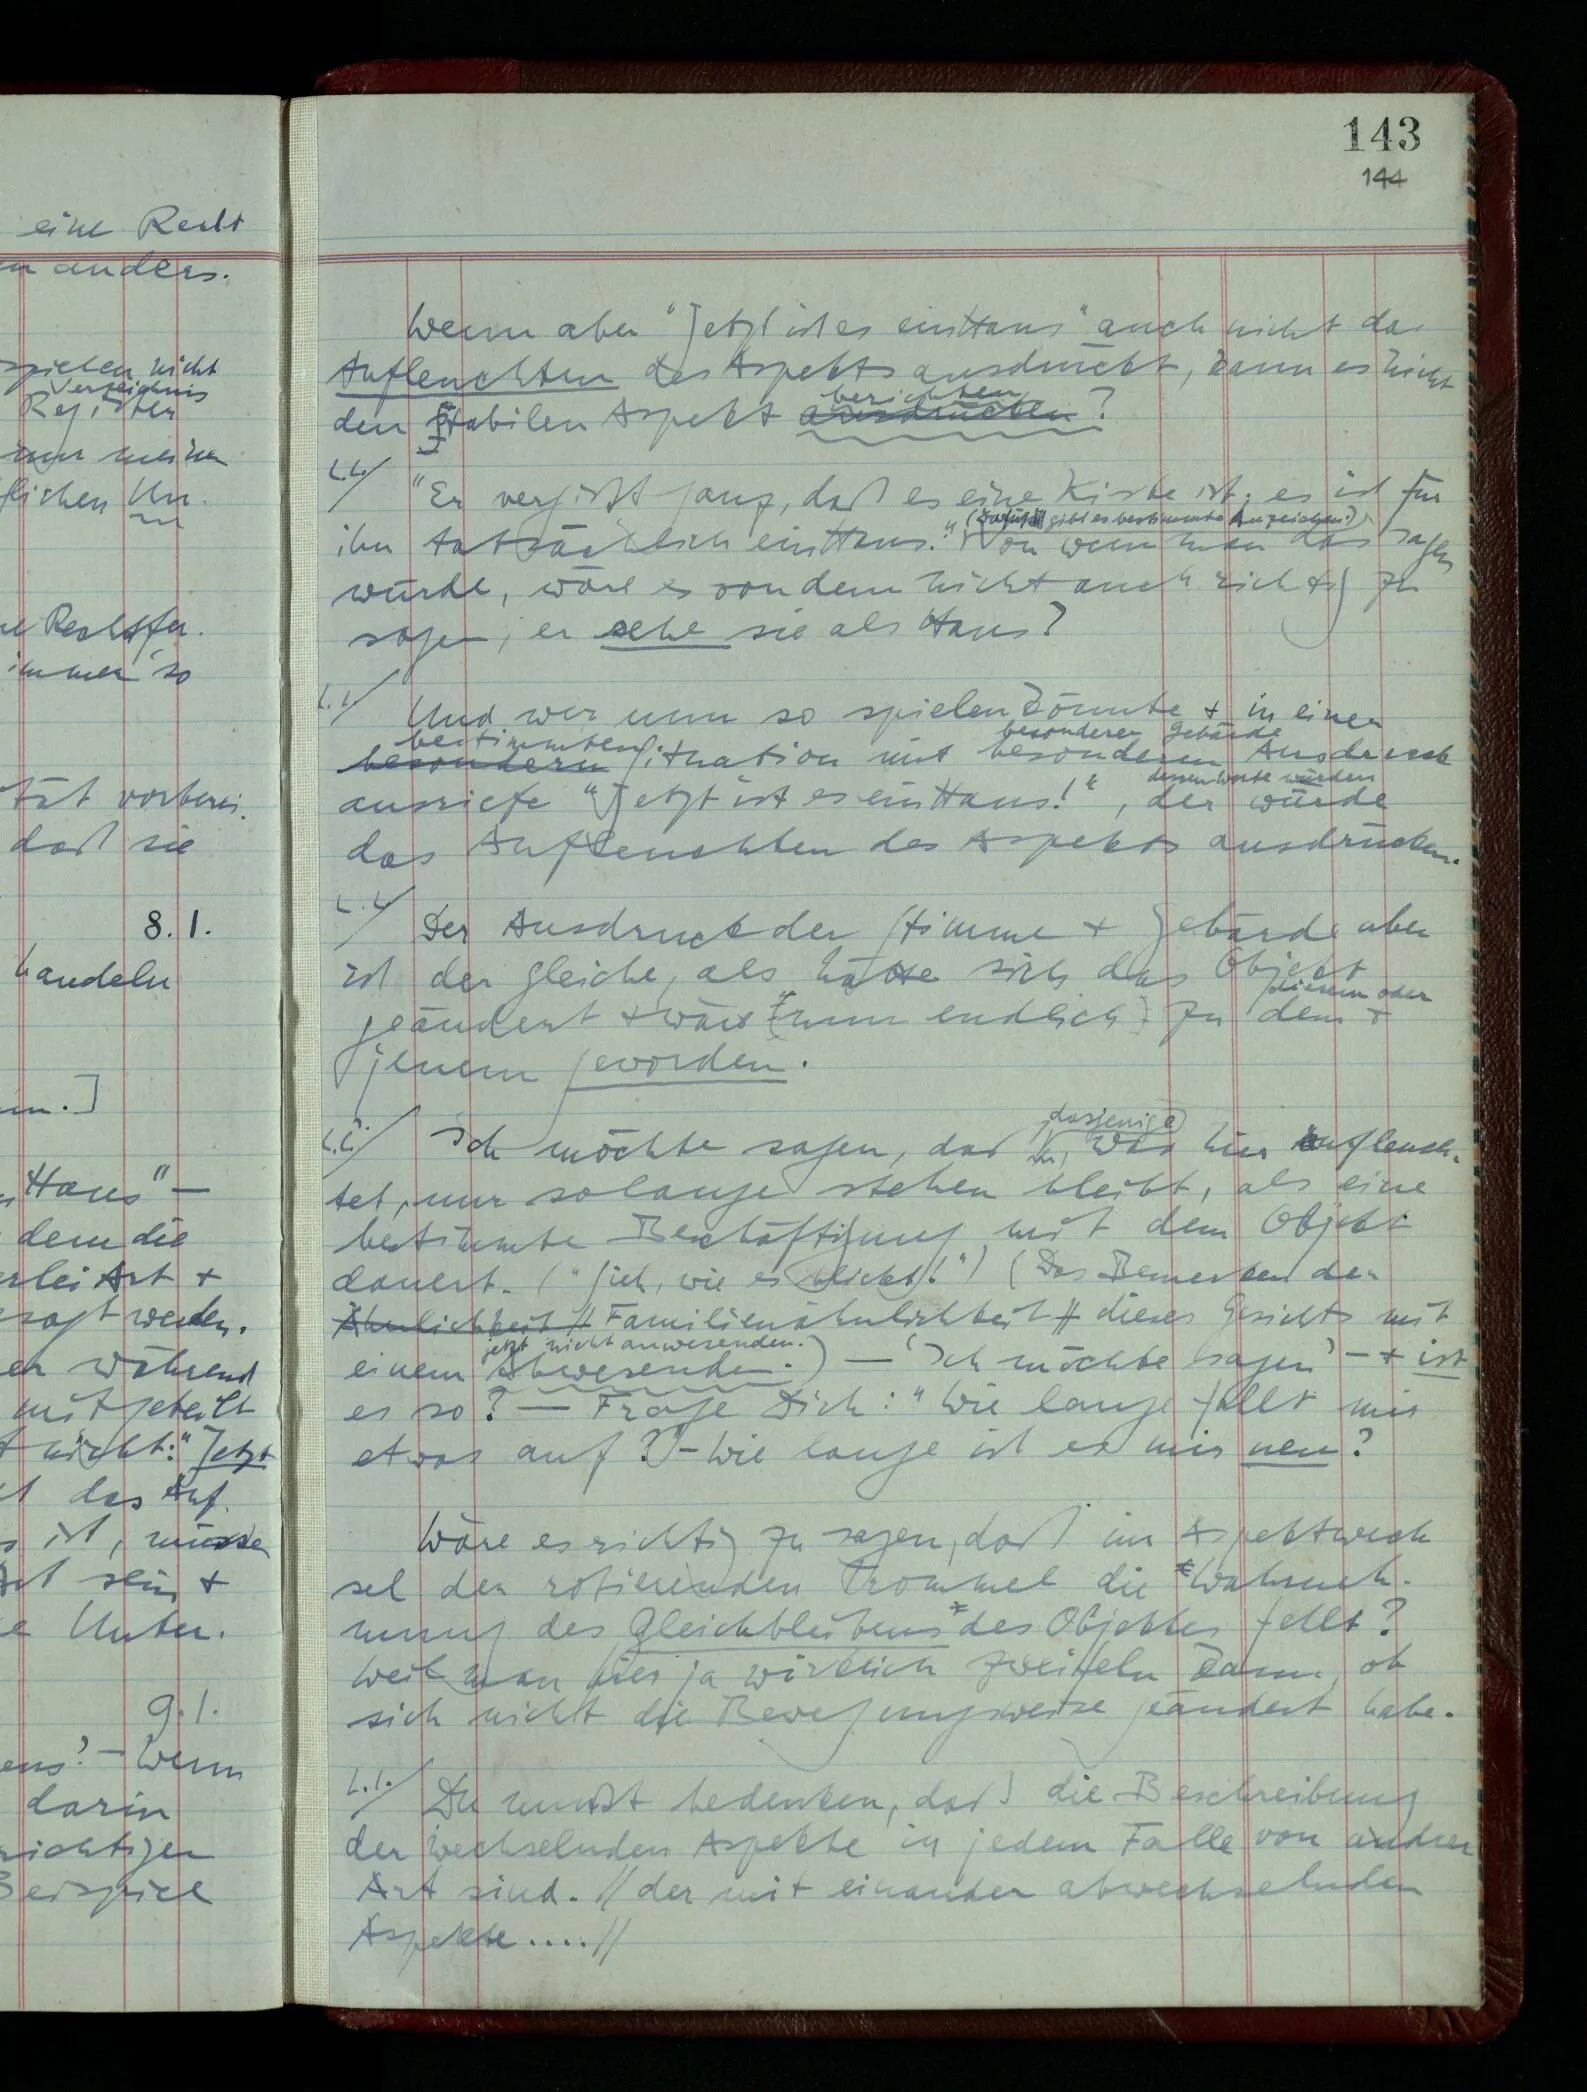 eine Recht
anders.
spielen nicht
Verzeichnis
Register
nur meinen
Un.
Rechtfer.
immer so
vorberei.
daß sie
8.1.
handeln
Haus" —
denn die
Art +
gesagt werden.
während
mitgeteilt
nicht: "Jetzt
das Auf.
ist, müsse
sein +
Unter.
9.1.
Wenn
darin
richtigen
Beispiel
143
144
Wenn aber "Jetzt ist es ein Haus" auch nicht das
Aufleuchten des Aspekts ausdrückt, kann es nicht
berichten
den stabilen Aspekt ausdrücken?
"Er vergißt ganz, daß es eine Kiste ist; es ist für
(Dafür gibt es bestimmte Anzeichen.)
ihn tatsächlich ein Haus." Von wem man das sagen
würde, wäre es von dem nicht auch richtig zu
sagen, er sehe sie als Haus?
Und wer nun so spielen könnte + in einer
bestimmten besonderer Gebärde
besondern Situation mit besonderem Ausdruck
dessen Worte würden
ausriefe "Jetzt ist es ein Haus!", der würde
das Aufleuchten des Aspekts ausdrücken.
Der Ausdruck der Stimme + Gebärde aber
ist der gleiche, als hätte sich das Objekt
diesem oder
geändert + wäre nun endlich zu dem +
jenem geworden.
dasjenige
Ich möchte sagen, daß, was hier aufleuch-
tet, nur solange stehen bleibt, als eine
bestimmte Beschäftigung mit dem Objekt
dauert. ("Sieh, wie es blickt!") (Das Bemerken der
Ähnlichkeit // Familienähnlichkeit // dieses Gesichts mit
jetzt nicht anwesenden.
einem Abwesenden.) — 'Ich möchte sagen' — + ist
es so? — Frage Dich: "Wie lange fällt mir
etwas auf?" – Wie lange ist es mir neu?
Wäre es richtig zu sagen, daß im Aspektwech
sel der rotierenden Trommel die Wahrneh-
mung des Gleichbleibens des Objektes fehlt?
Weil man hier ja wirklich zweifeln kann, ob
sich nicht die Bewegungsweise geändert habe.
Du mußt bedenken, daß die Beschreibung
der wechselnden Aspekte in jedem Falle von andrer
Art sind. // der mit einander abwechselnden
Aspekte.... //